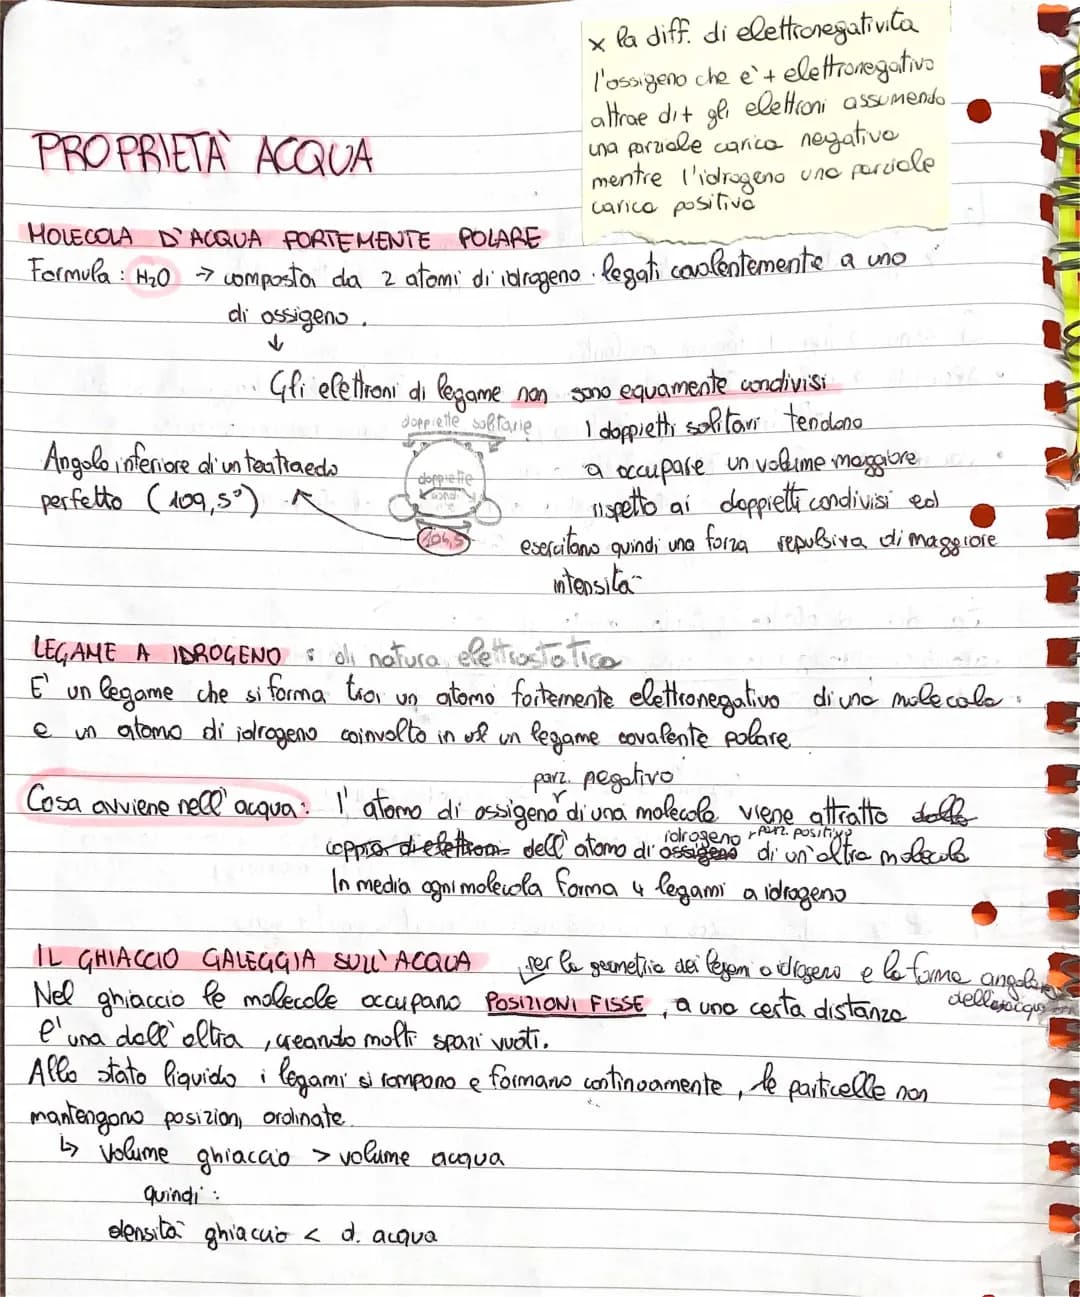 x la diff. di elettronegatività
l'ossigeno che e' + elettronegativo
attrae di+ gli elettroni assumendo
una parziale carica negativa
mentre l'idrogeno una parziale
carica positiva
PROPRIETÀ ACQUA
MOLECOLA D'ACQUA FORTEMENTE POLARE
Formula : H₂O → composta da 2 atomi di idrogeno legati covalentemente a uno
di ossigeno.
↓
Gli elettroni di legame non sono equamente condivisi
doppiette solitarie
I doppietti solitari tendono
a occupare un volume maggiore
rispetto ai doppietti condivisi ed
esercitano quindi una forza repulsiva di maggiore
intensità
Angolo inferiore di un teatraedo
perfetto (109,5°)
doppiette
cond.
104,5
LEGAME A IDROGENO : di natura elettrostatica
E' un legame che si forma tra un atomo fortemente elettronegativo di una molecola
e un atomo di idrogeno coinvolto in un legame covalente polare
parz. negativo
Cosa avviene nell'acqua: l'atomo di ossigeno di una molecola viene attratto dalla
idrogeno parz. positivo
coppia di elettroni dell'atomo di ossigeno di un'altra molecola
In media ogni molecola forma 4 legami a idrogeno
IL GHIACCIO GALEGGIA SULL'ACQUA
per la geometria dei legami a idrogeno e la forma angolare
dell'acqua
Nel ghiaccio le molecole occupano POSIZIONI FISSE, a una certa distanza
l'una dall'altra, creando molti spazi vuoti.
Allo stato liquido i legami si rompono e formano continuamente, le particelle non
mantengono posizioni ordinate.
↳ volume ghiaccio > volume acqua
quindi :
densità ghiaccio < d. acqua